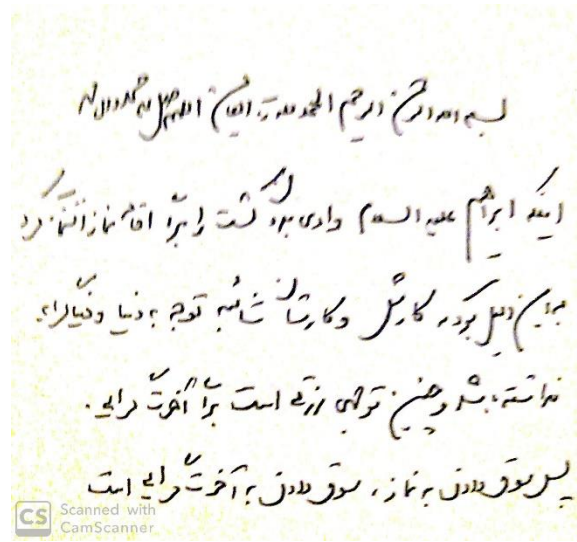 بسم الله الرحمن الرحیم الحمد لله رب العالمین اللهم صل علی محمد و آل محمد
اینکه ابراهیم علیه السلام وادی بدون کشت را برای اقامه نماز انتخاب کرد
به این دلیل بود که کارش و کارشان شائبه توجه به دنیا و دنیاگرایی
نداشته باشد و چنین توجهی رزقی است برای آخرت گرایی.
پس سوق دادن به نماز، سوق دادن به آخرت گرایی است
CS Scanned with
CamScanner